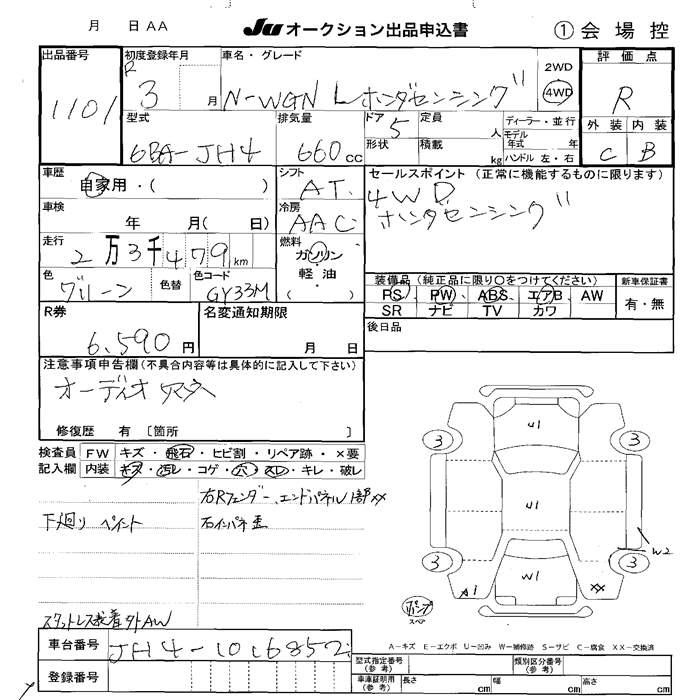 月 日 AA JU オークション出品申込書 ① 会場控
出品番号 初度登録年月 車名・グレード 2WD 評価点
1101 R 3 月 N-WGN L ホンダセンシング 4WD R
型式 排気量 ドア 5 定員 人 ディーラー・並行 外装 内装
6BA-JH4 660cc 形状 積載 kg モデル年式 年 C B
ハンドル 左・右
車歴 シフト セールスポイント (正常に機能するものに限ります)
自家用・( ) AT 4WD
車検 年 月( 日) 冷房 AAC ホンダセンシング
走行 2万3千479km 燃料 ガソリン・軽油・( )
色 グリーン 色替 色コード GY33M
装備品 (純正品に限り○をつけてください) 新車保証書
PS、PW、ABS、エアB、AW 有・無
SR ナビ TV カワ
R券 6,590円 名変通知期限 月 日 後日品
注意事項申告欄(不具合内容等は具体的に記入して下さい)
オーディオ
修復歴 有 〔箇所 〕
検査員 FW キズ・飛石・ヒビ割・リペア跡・×要
記入欄 内装 キズ・汚レ・コゲ・穴・スレ・キレ・破レ
右Rフェンダー、エンドパネル1部××
下廻り ペイント 右インパネ歪
U1
3 3
U1
W2
3 3
W1
A1 ××
パンク
スペア
スタットレス装着 外AW
A－キズ E－エクボ U－凹み W－補修跡 S－サビ C－腐食 XX－交換済
車台番号 JH4-1016852
登録番号
型式指定番号(参考) 類別区分番号(参考)
車庫証明用(参考) 長さ cm 幅 cm 高さ cm